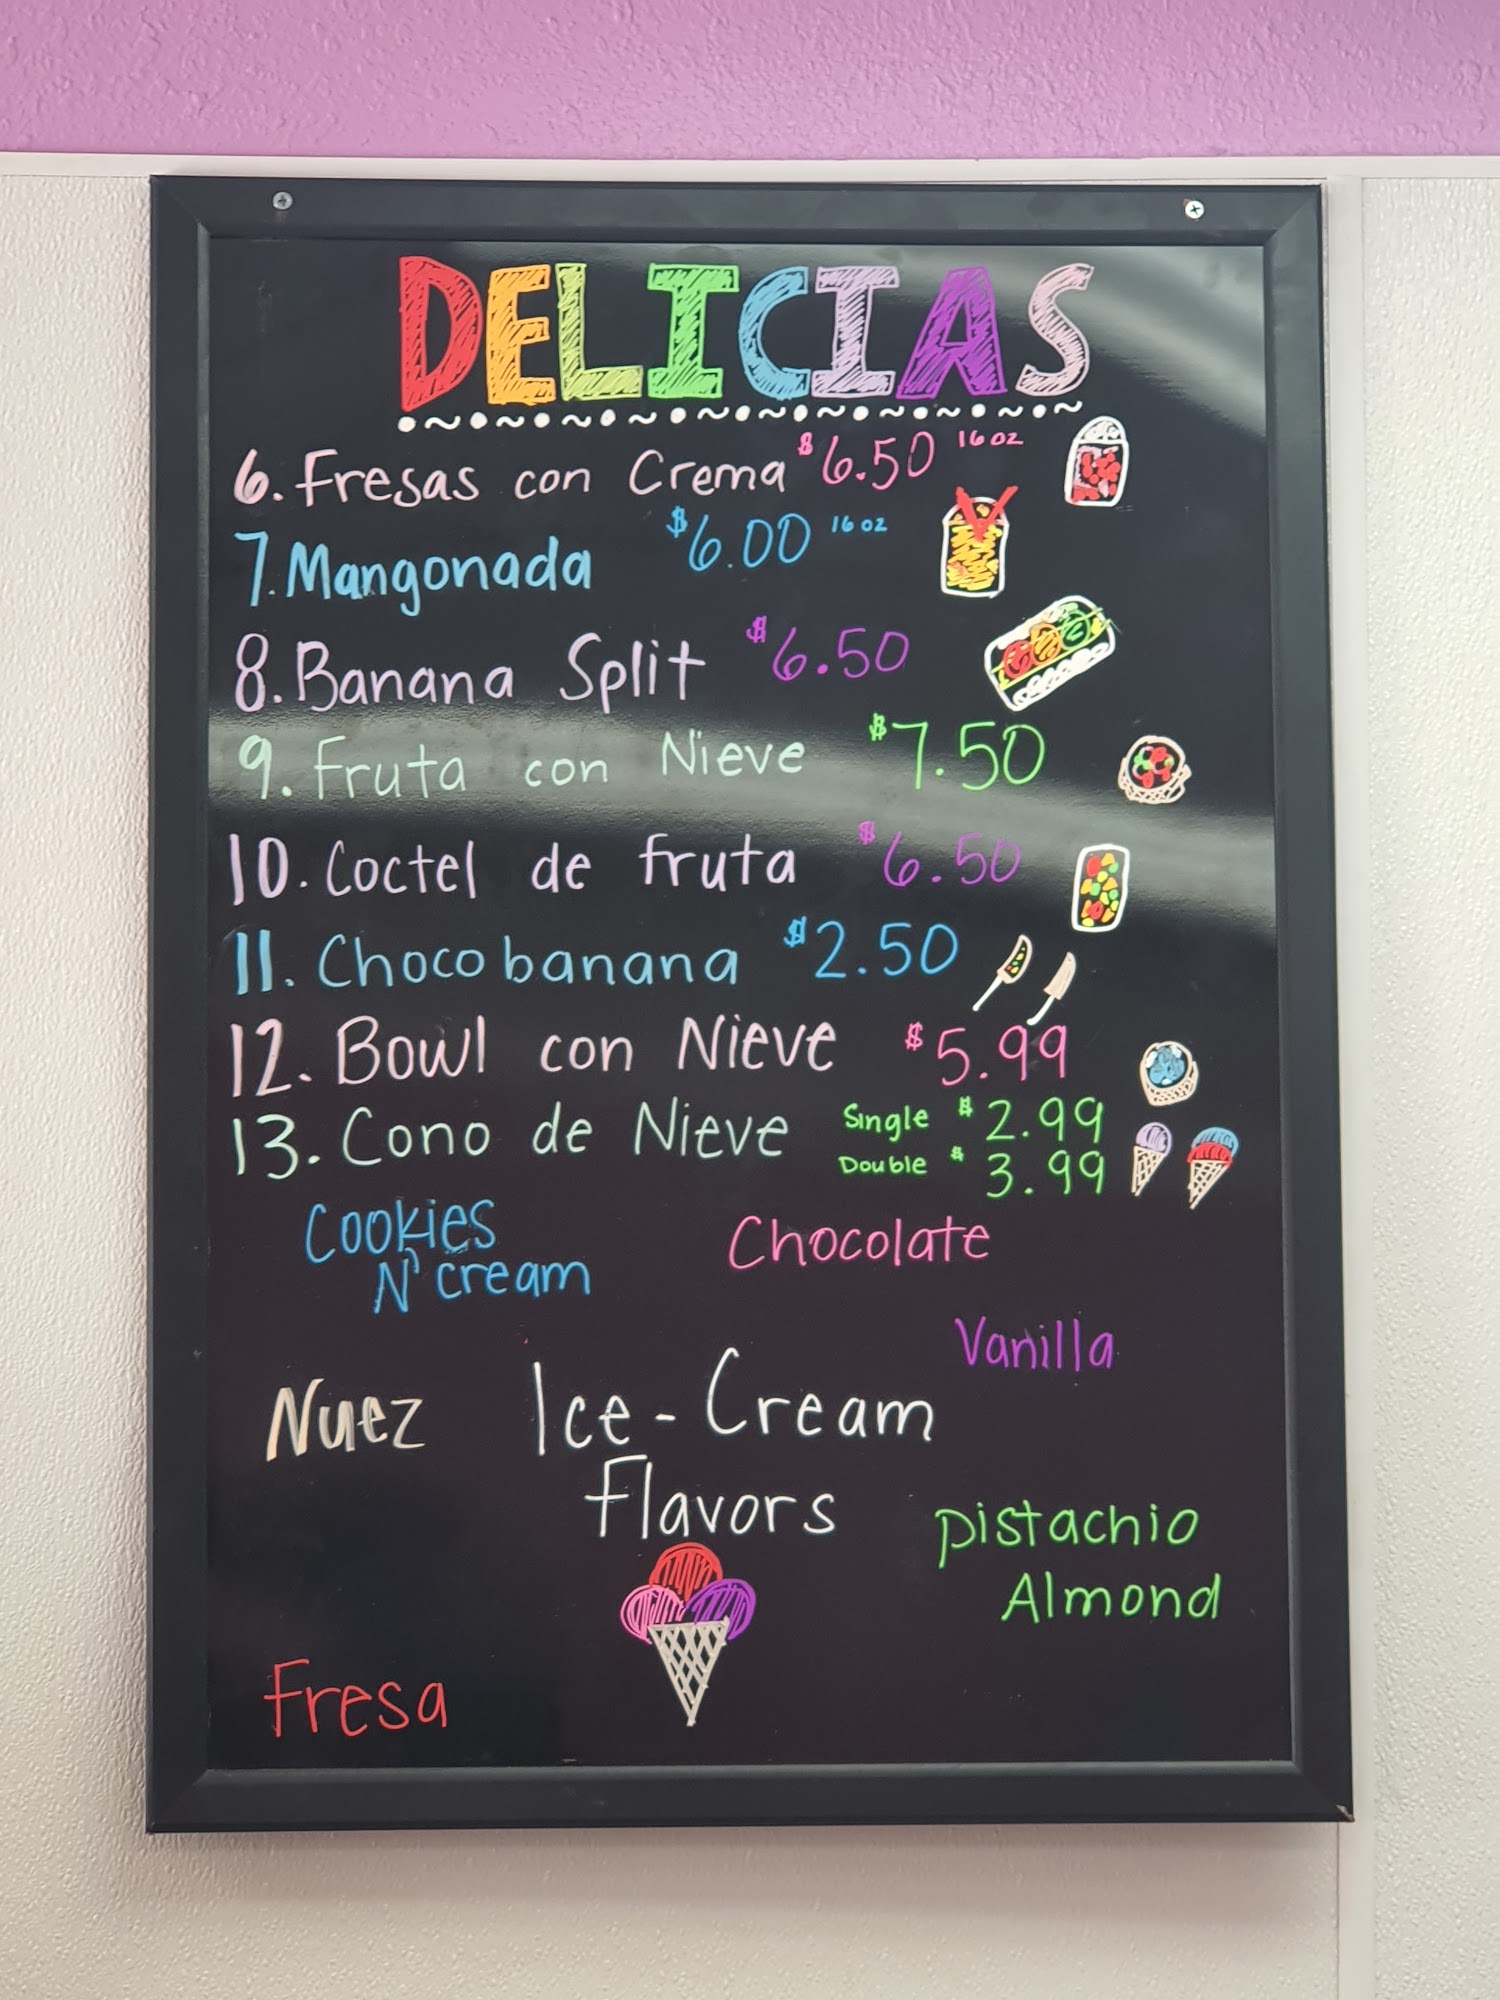 DELICIAS
6. Fresas con Crema $6.50 16 oz
7. Mangonada $6.00 16 oz
8. Banana Split $6.50
9. Fruta con Nieve $7.50
10. Coctel de fruta $6.50
11. Chocobanana $2.50
12. Bowl con Nieve $5.99
13. Cono de Nieve Single $2.99
Double $3.99
Cookies
N' Cream
Chocolate
Vanilla
Nuez
Ice-Cream
Flavors
Pistachio
Almond
Fresa